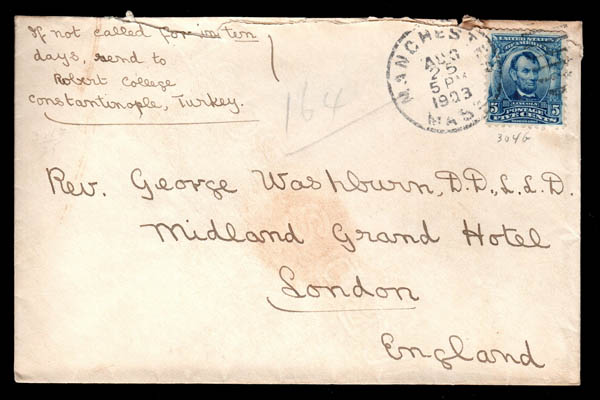 If not called for in ten
days, send to
Robert College
Constantinople, Turkey.
164
MANCHESTER
AUG
25
5 PM
1903
MASS
UNITED STATES
OF AMERICA
LINCOLN
5 POSTAGE 5
FIVE CENTS
304G
Rev. George Washburn, D.D., L.L.D.
Midland Grand Hotel
London
England